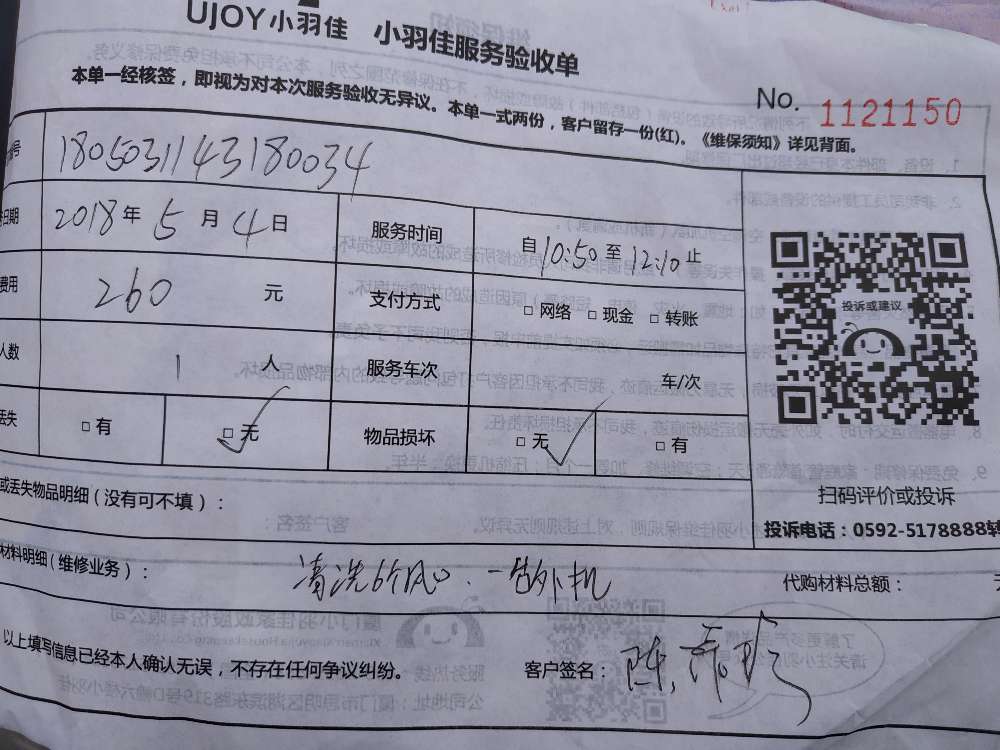 UJOY小羽佳 小羽佳服务验收单
本单一经核签，即视为对本次服务验收无异议。本单一式两份，客户留存一份(红)。《维保须知》详见背面。
No. 1121150
号 1805031143180034
日期 2018年5月4日 服务时间 自10:50至12:10止
费用 260 元 支付方式 □网络 □现金 □转账
投诉或建议
人数 1 人 服务车次 车/次
丢失 □有 □无 物品损坏 □无 □有
扫码评价或投诉
或丢失物品明细（没有可不填）：
投诉电话：0592-5178888转
材料明细（维修业务）： 清洗6个风口、一台外机 代购材料总额：
以上填写信息已经本人确认无误，不存在任何争议纠纷。 客户签名： 陈